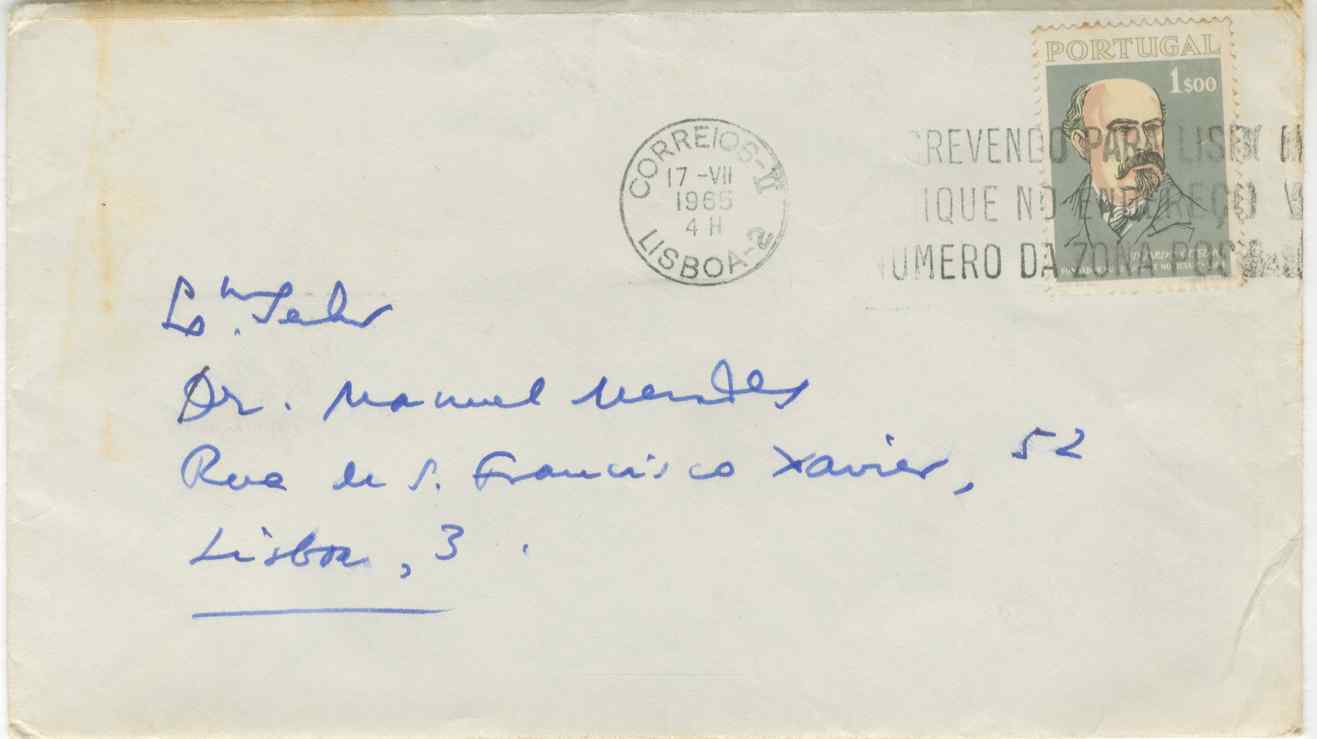 PORTUGAL
1$00
CORREIOS-
17-VII
1965
4 H
LISBOA-2
CREVENDO PARA LISB
IQUE NO ENDEREÇO
NUMERO DA ZONA POSTAL
Dr. Manuel Mendes
Rua de S. Francisco Xavier, 52
Lisboa, 3.